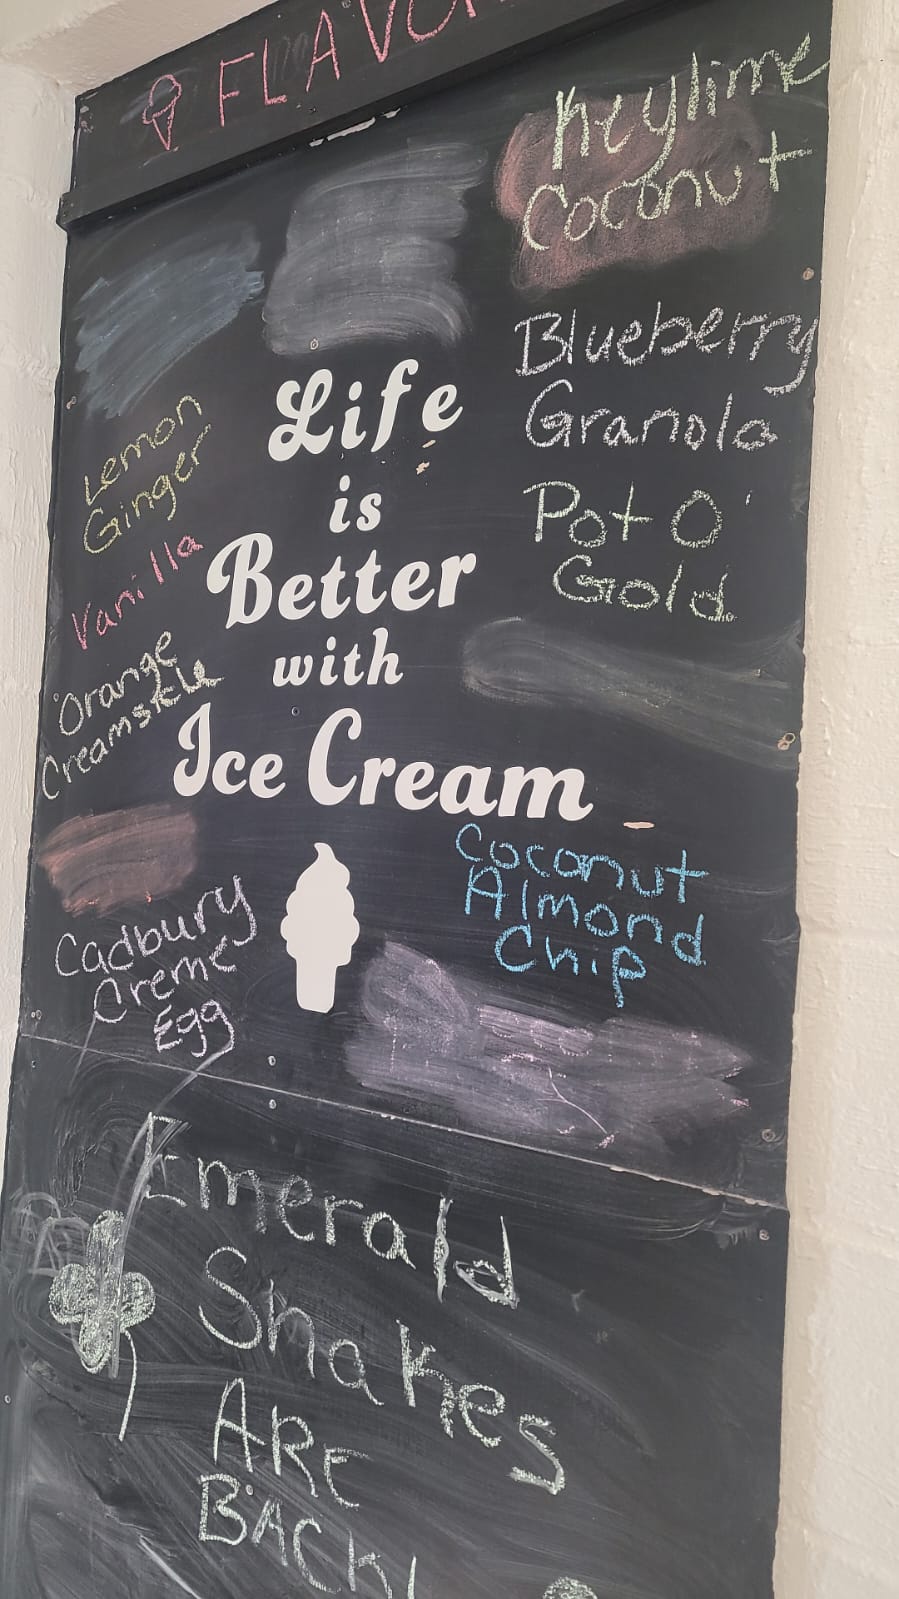 FLAVO
Keylime
Coconut
Blueberry
Granola
Pot O'
Gold
Lemon
Ginger
Vanilla
Orange
Life
is
Better
with
Ice Cream
Cadbury
Creme
Egg
Coconut
Almond
Chip
Emerald
Shakes
ARE
BACK!